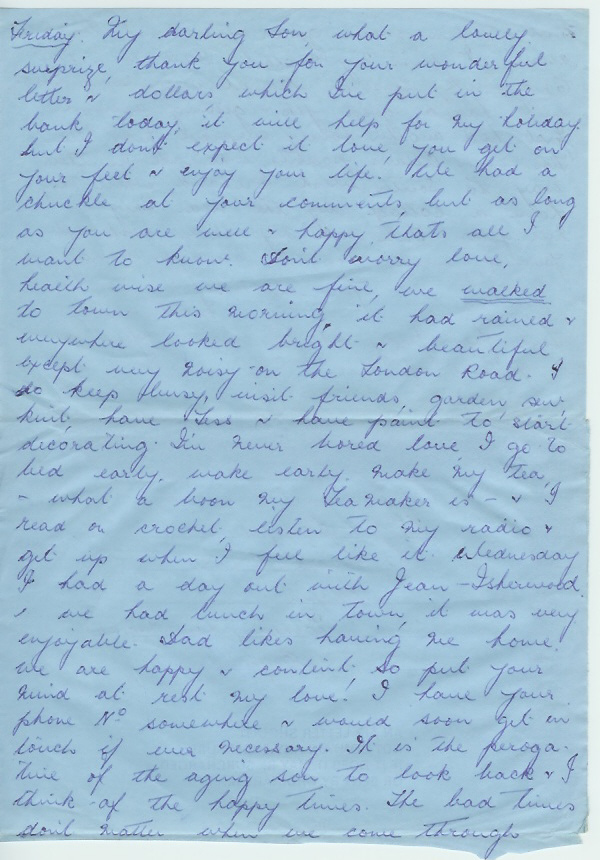 Friday. My darling Son, what a lovely
surprize, thank you for your wonderful
letter & dollars, which I've put in the
bank today, it will help for my holiday
but I don't expect it love, you get on
your feet & enjoy your life. We had a
chuckle at your comments, but as long
as you are well & happy thats all I
want to know. Dont worry love,
health wise we are fine, we walked
to town this morning, it had rained &
everywhere looked bright & beautiful
except very noisy on the London Road. I
do keep busy, visit friends, garden, sew
knit, have Tess & have paint to start
decorating. I'm never bored love, I go to
bed early, wake early make my tea,
- what a boon my Teamaker is - & I
read or crochet, listen to my radio &
get up when I feel like it. Wednesday
I had a day out with Jean - Isherwood,
& we had lunch in town, it was very
enjoyable. Dad likes having me home,
we are happy & content, so put your
mind at rest my love! I have your
phone No somewhere & would soon get in
touch if ever necessary. It is the peroga-
tive of the aging son to look back & I
think of the happy times. The bad times
don't matter when we come through